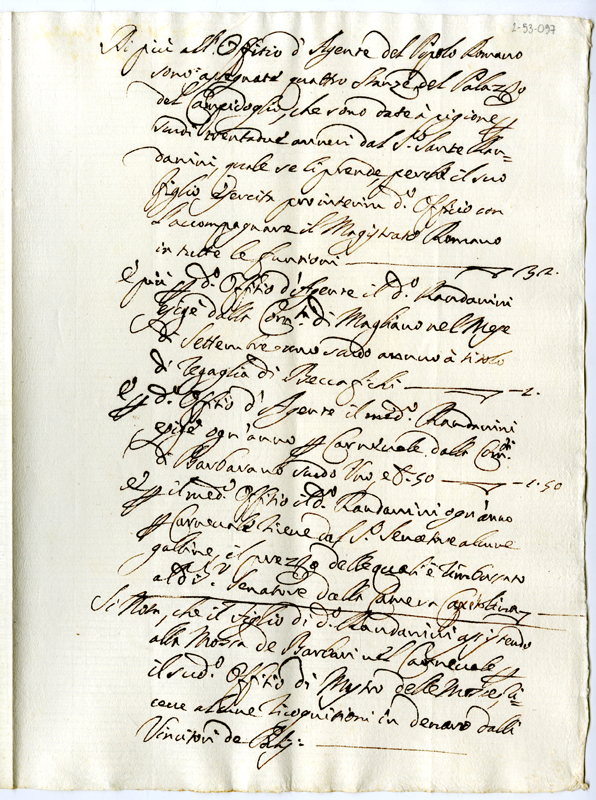 2-53-097
Di più all'Offitio d'Agente del Popolo Romano
sono assegnate quattro stanze del Palazzo
del Campidoglio, che sono date à pigione p
scudi trentadue annui dal S.r Sante Ran=
danini, quale se li prende, perche il suo
figlio esercita pro interim d.o Officio con
l'accompagnare il Magistrato Romano
in tutte le funzioni — 32.
E più p d.o Offitio d'Agente il d.o Randanini
esige dalla Com.tà di Magliano nel Mese
di Settembre uno scudo annuo à titolo
di Regaglia di Beccafichi — 1.
E p d.o Offitio d'Agente il med.o Randanini
esige ogn'anno p Carnevale dalla Com.tà
di Barbarano scudo Uno, e b. 50 — 1.50
E p il med.o Offitio il d.o Randanini ogn'anno
p Carnevale riceve dal S.r Senatore alcune
galline, il prezzo delle quali è rimborsato
al d.o S.r Senatore dalla Camera Capitolina —
Si Nota, che il figlio di d.o Randanini assistendo
alla Mossa de Barbari nel Carnevale p
il sud.o Offitio di Mastro delle Mosse, ri=
ceve alcune ricognitioni in denaro dalli
Vincitori de Palij: —